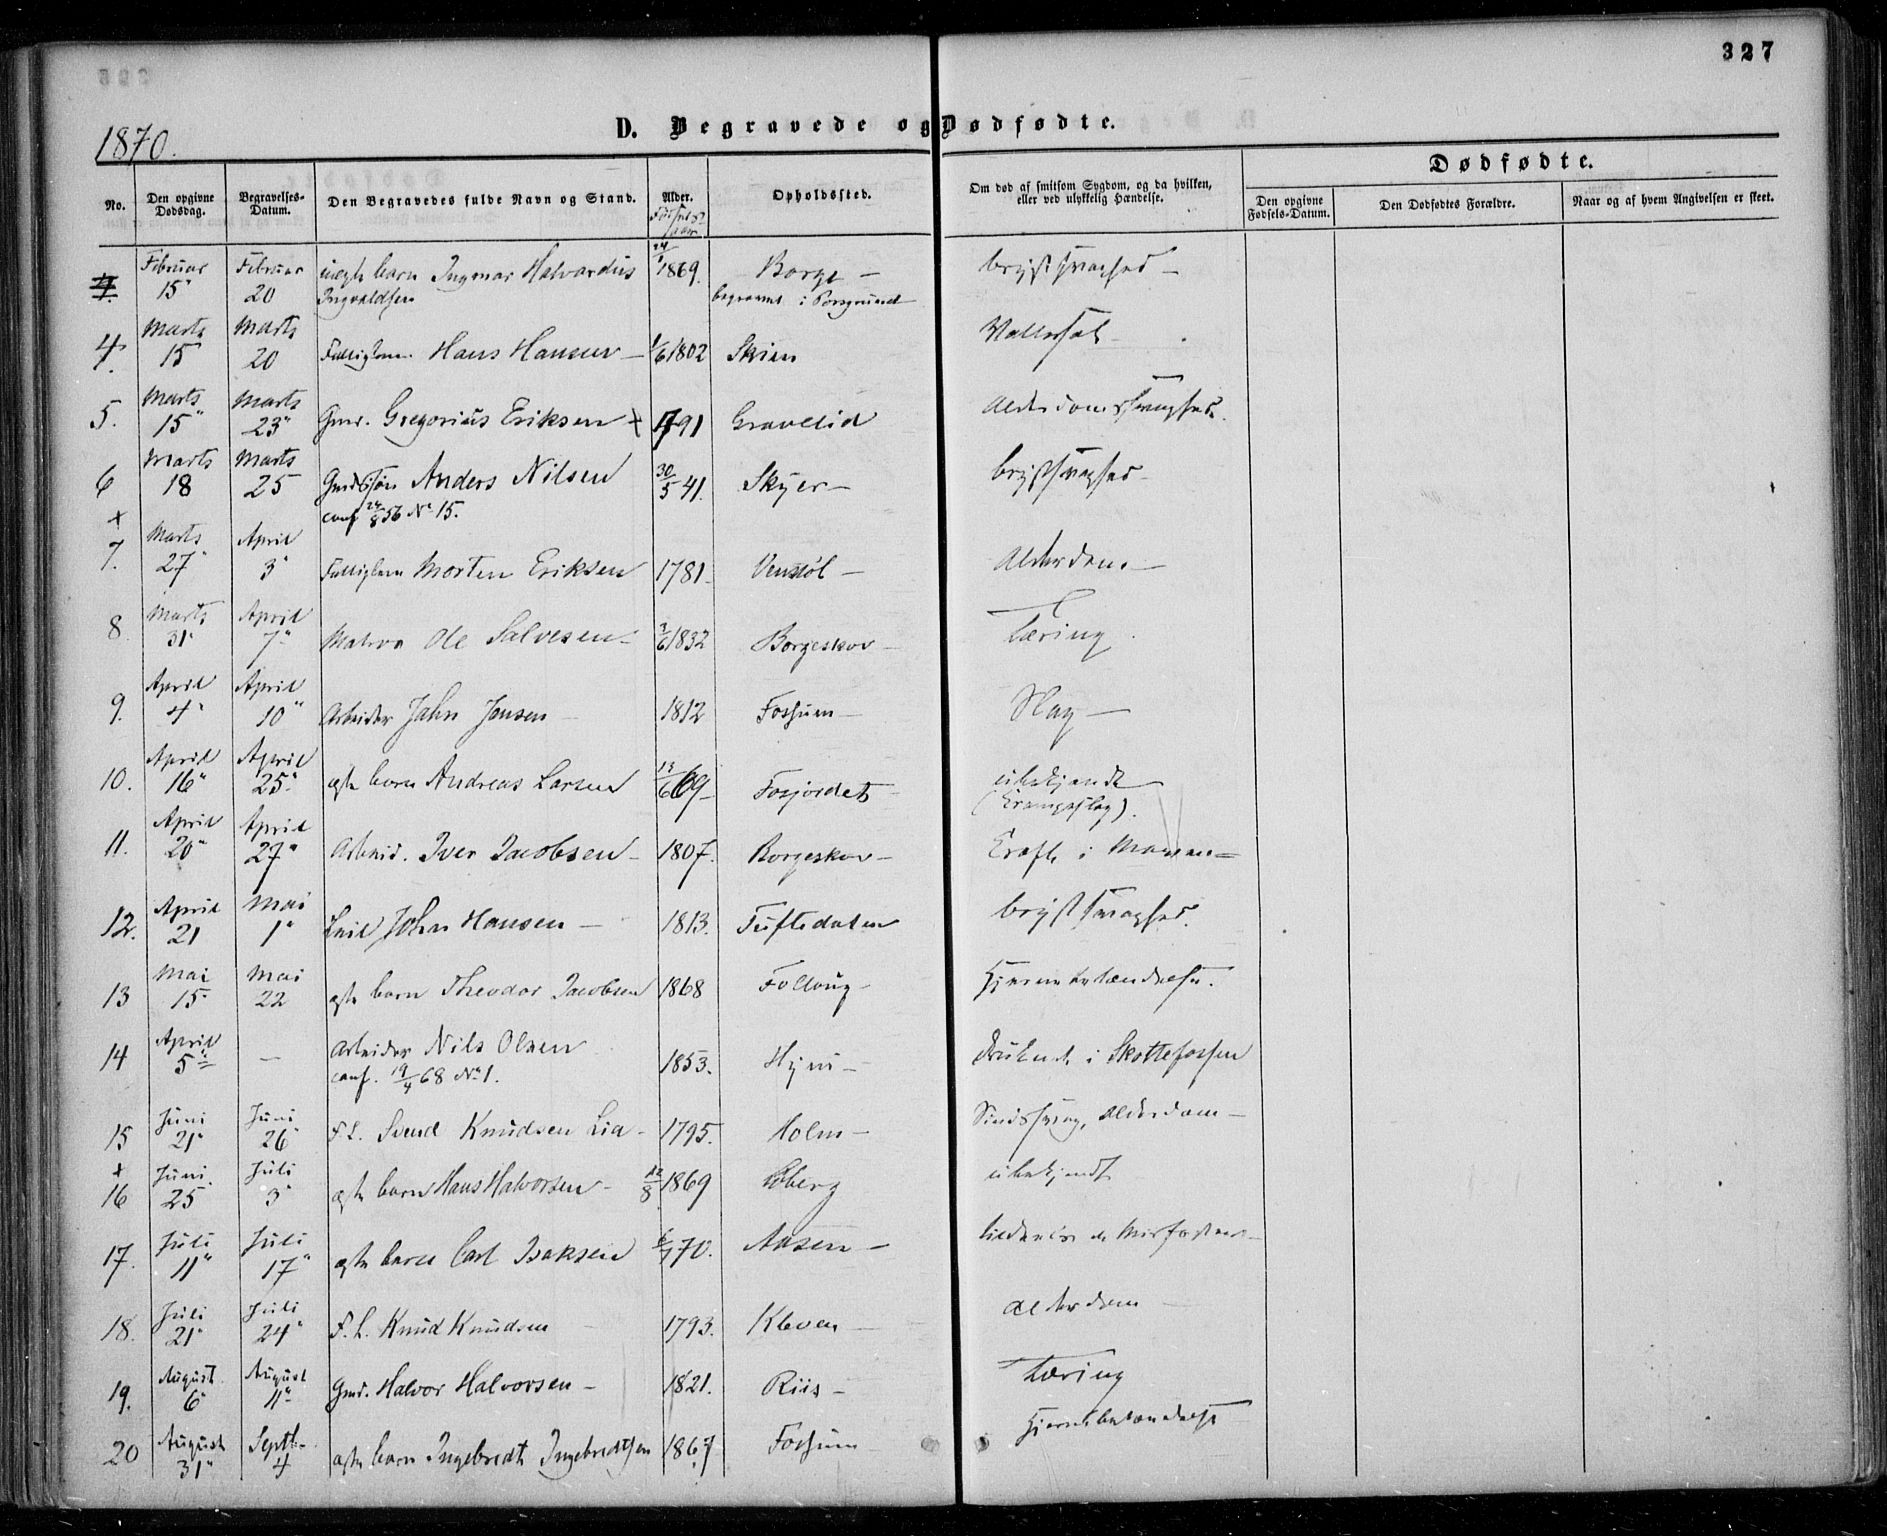 327
1870.
D. Begravede og Dødfødte.
No.
Den opgivne Dødsdag.
Begravelses-Datum.
Den Begravedes fulde Navn og Stand.
Alder.
Fødselsaar
Opholdssted.
Om død af smitsom Sygdom, og da hvilken, eller ved ulykkelig Hændelse.
Dødfødte.
Den opgivne Fødsels-Datum.
Den Dødfødtes Forældre.
Naar og af hvem Angivelsen er skeet.
Februar 15" Februar 20 uægte barn Ingmar Halvardus 1869. Borge - brystsvaghed -
Ingvaldsen begravet i Porsgrund
4. Marts 15 Marts 20 Fattiglem Hans Hansen - 1/6 1802 Skien Vattersot -
5. Marts 15" Marts 23" Gmd. Gregorius Eriksen + 1791 Gravelid Alderdomssvaghed.
6 Marts 18 Marts 25 Gmdssøn Anders Nilsen 30/5 41. Skyer - brystsvaghed -
conf 24/8 56 No 15.
+
7. Marts 27" April 3" Fattiglem Morten Eriksen 1781. Venstøl - Alderdom -
8 Marts 31" April 7" Matros Ole Salvesen - 1832 Borgeskov - Tæring.
9. April 4" April 10" Arbeider John Jensen - 1812 Fossum - Slag -
10. April 16" April 25" ægte barn Andreas Larsen 13/6 69 - Fosjordet - ubekjendt -
(Krampeslag).
11. April 20" April 27" Arbeid. Iver Jacobsen - 1807. Borgeskov - Kræft i Maven =
12. April 21 Mai 1" Leil John Hansen - 1813. Tuftedalen brystsvaghed.
13 Mai 15" Mai 22 ægte barn Theodor Jacobsen 1868 Follaug - Hjernebetændelse.
14 April 5" - Arbeider Nils Olsen 1853. Hyni - druknede i Skottefossen
conf. 19/4 68 No 1.
15 Juni 21" Juni 26" F. L. Svend Knudsen Lia - 1795. Holm - Sindssvag, Alderdom -
+
16 Juni 25 Juli 3" ægte barn Hans Halvorsen - 12/8 1869 ubekjendt
17. Juli 11" Juli 17" ægte barn Carl Isaksen 70. Aasen -
18. Juli 21" Juli 24" F. L. Knud Knudsen - 1793. Kleven - Alderdom -
19. August 6" August 11" Gmd. Halvor Halvorsen - 1821. Riis - Tæring
20 August 31" Septb. 4 ægte barn Ingebredt Ingebredtsen 1867 Fossum - Hjernebetændelse